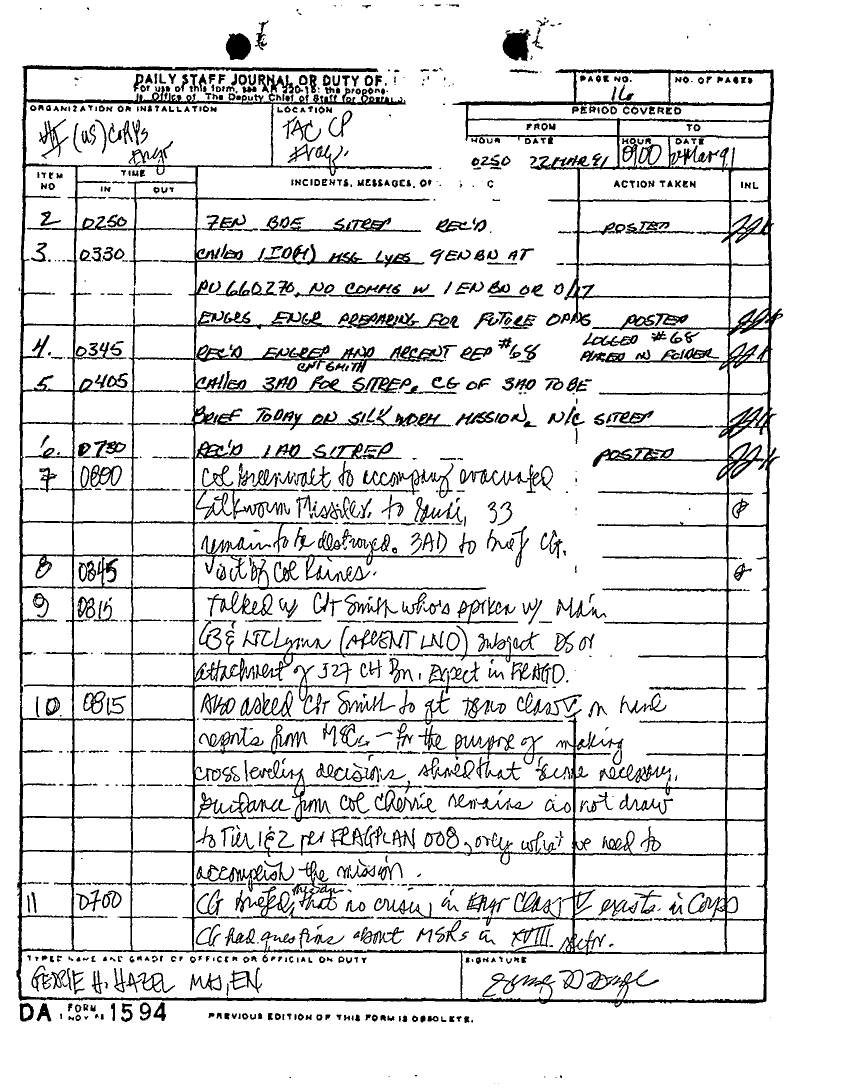 DAILY STAFF JOURNAL OR DUTY OF
For use of this form, see AR 220-15; the propone
is Office of The Deputy Chief of Staff for Opera
PAGE NO.
16
NO. OF PAGES
ORGANIZATION OR INSTALLATION
(US) CORPS
Engr
LOCATION
TAC CP
Iraq
PERIOD COVERED
FROM
TO
HOUR DATE
HOUR DATE
0250 22 MAR 91
0900 Mar 91
ITEM NO
TIME
IN OUT
INCIDENTS, MESSAGES, OR
ACTION TAKEN
INL
2 0250 7EN BDE SITREP REC'D POSTED
3. 0330 CALLED 1ID(M) MSG LYES 9 EN BN AT
PU 660270, NO COMMS W 1 EN BN OR D/17
ENGRS, ENGR PREPARING FOR FUTURE OPNS POSTED
4. 0345 REC'D ENGREP AND ARCENT REP #68 LOGGED #68
PLACED IN FOLDER
CPT SMITH
5. 0405 CALLED 3AD FOR SITREP. CG OF 3AD TO BE
BRIEF TODAY ON SILK WORM MISSION, N/C SITREP
6. 0730 REC'D 1AD SITREP POSTED
7 0800 Col Greenwalt to accompany evacuated
Silkworm Missiles to Saudi, 33
remain to be destroyed. 3AD to brief CG.
8 0845 Visit of Col Raines.
9 0815 Talked w/ CPT Smith who's spoken w/ Main
G3 & LTC Lynn (ARCENT LNO) subject DS or
attachment of 327 CH Bn. Expect in FRAGO.
10 0815 Also asked CPT Smith to get Class V on hand
reports from MSCs - for the purpose of making
cross leveling decisions, should that become necessary.
Guidance from Col Cherrie remains do not draw
to Tier 1&2 per FRAGPLAN 008, only what we need to
accomplish the mission.
11 0700 CG briefed that no crisis in Engr Class V exists in Corps
CG had questions about MSRs in XVIII sector.
TYPED NAME AND GRADE OF OFFICER OR OFFICIAL ON DUTY
GEORGE H. HAZEL MAJ, EN
SIGNATURE
DA FORM 1 NOV 1594
PREVIOUS EDITION OF THIS FORM IS OBSOLETE.